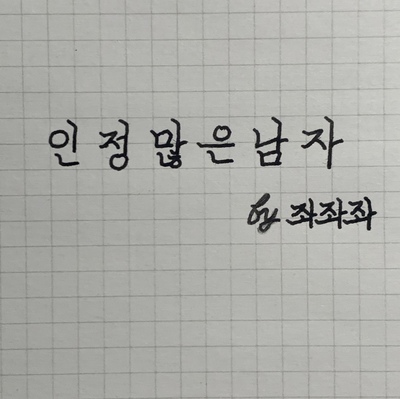 인정많은남자
by 좌좌좌